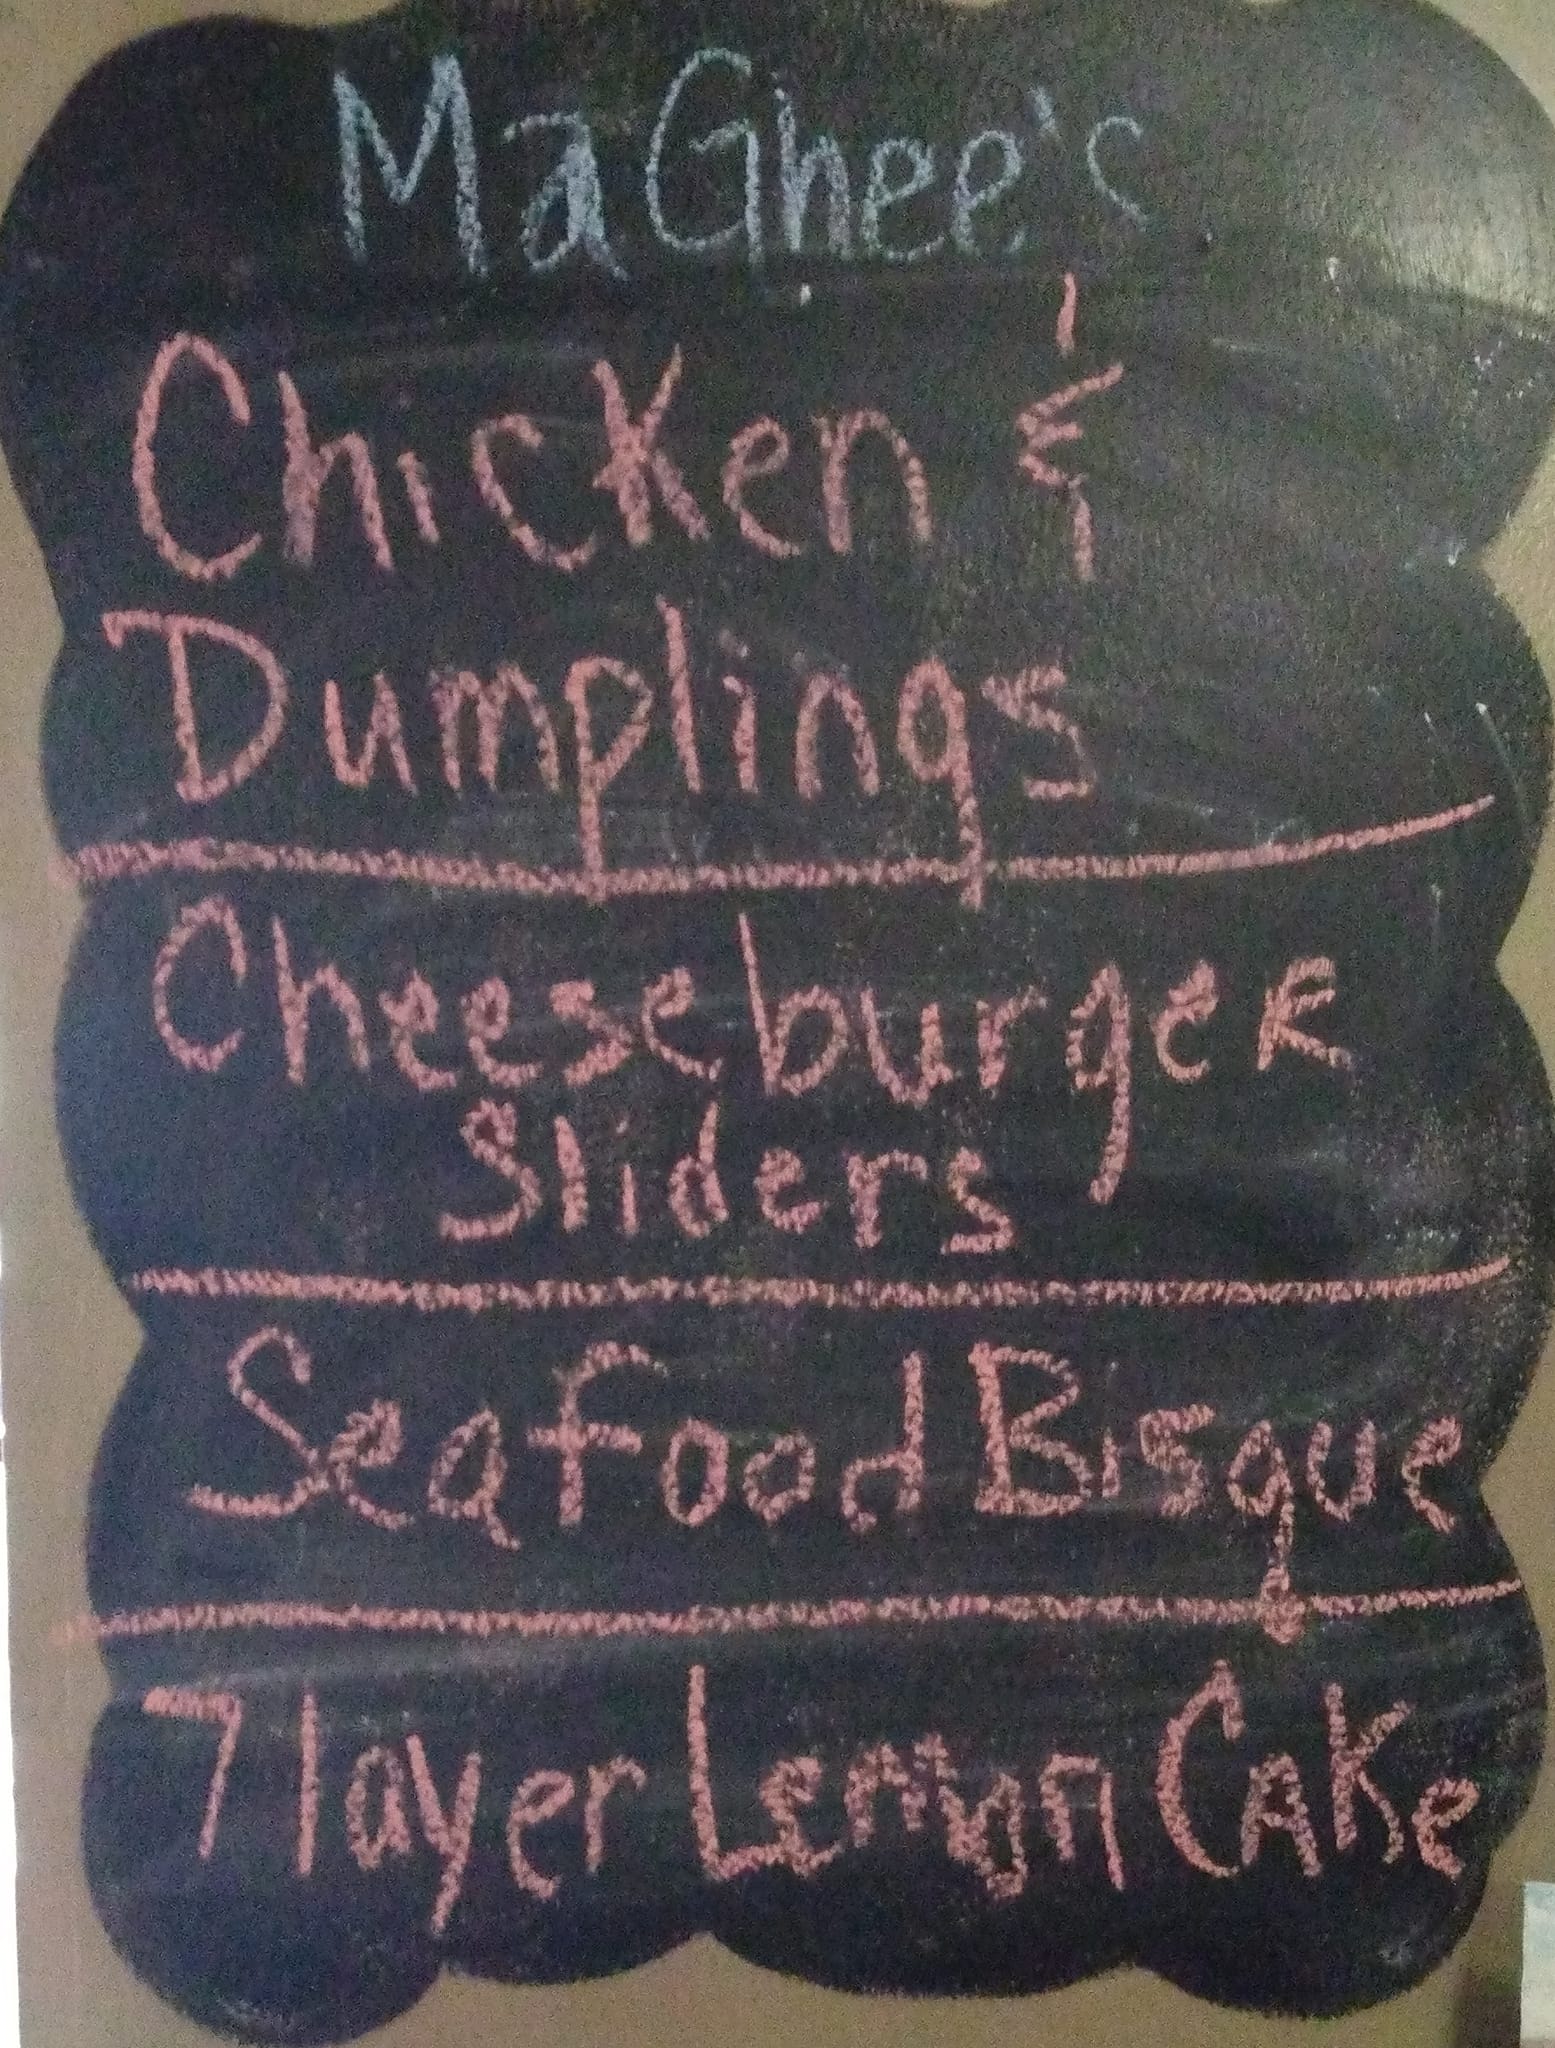 MaGhee's
Chicken &
Dumplings
Cheeseburger
Sliders
Seafood Bisque
7 layer Lemon Cake